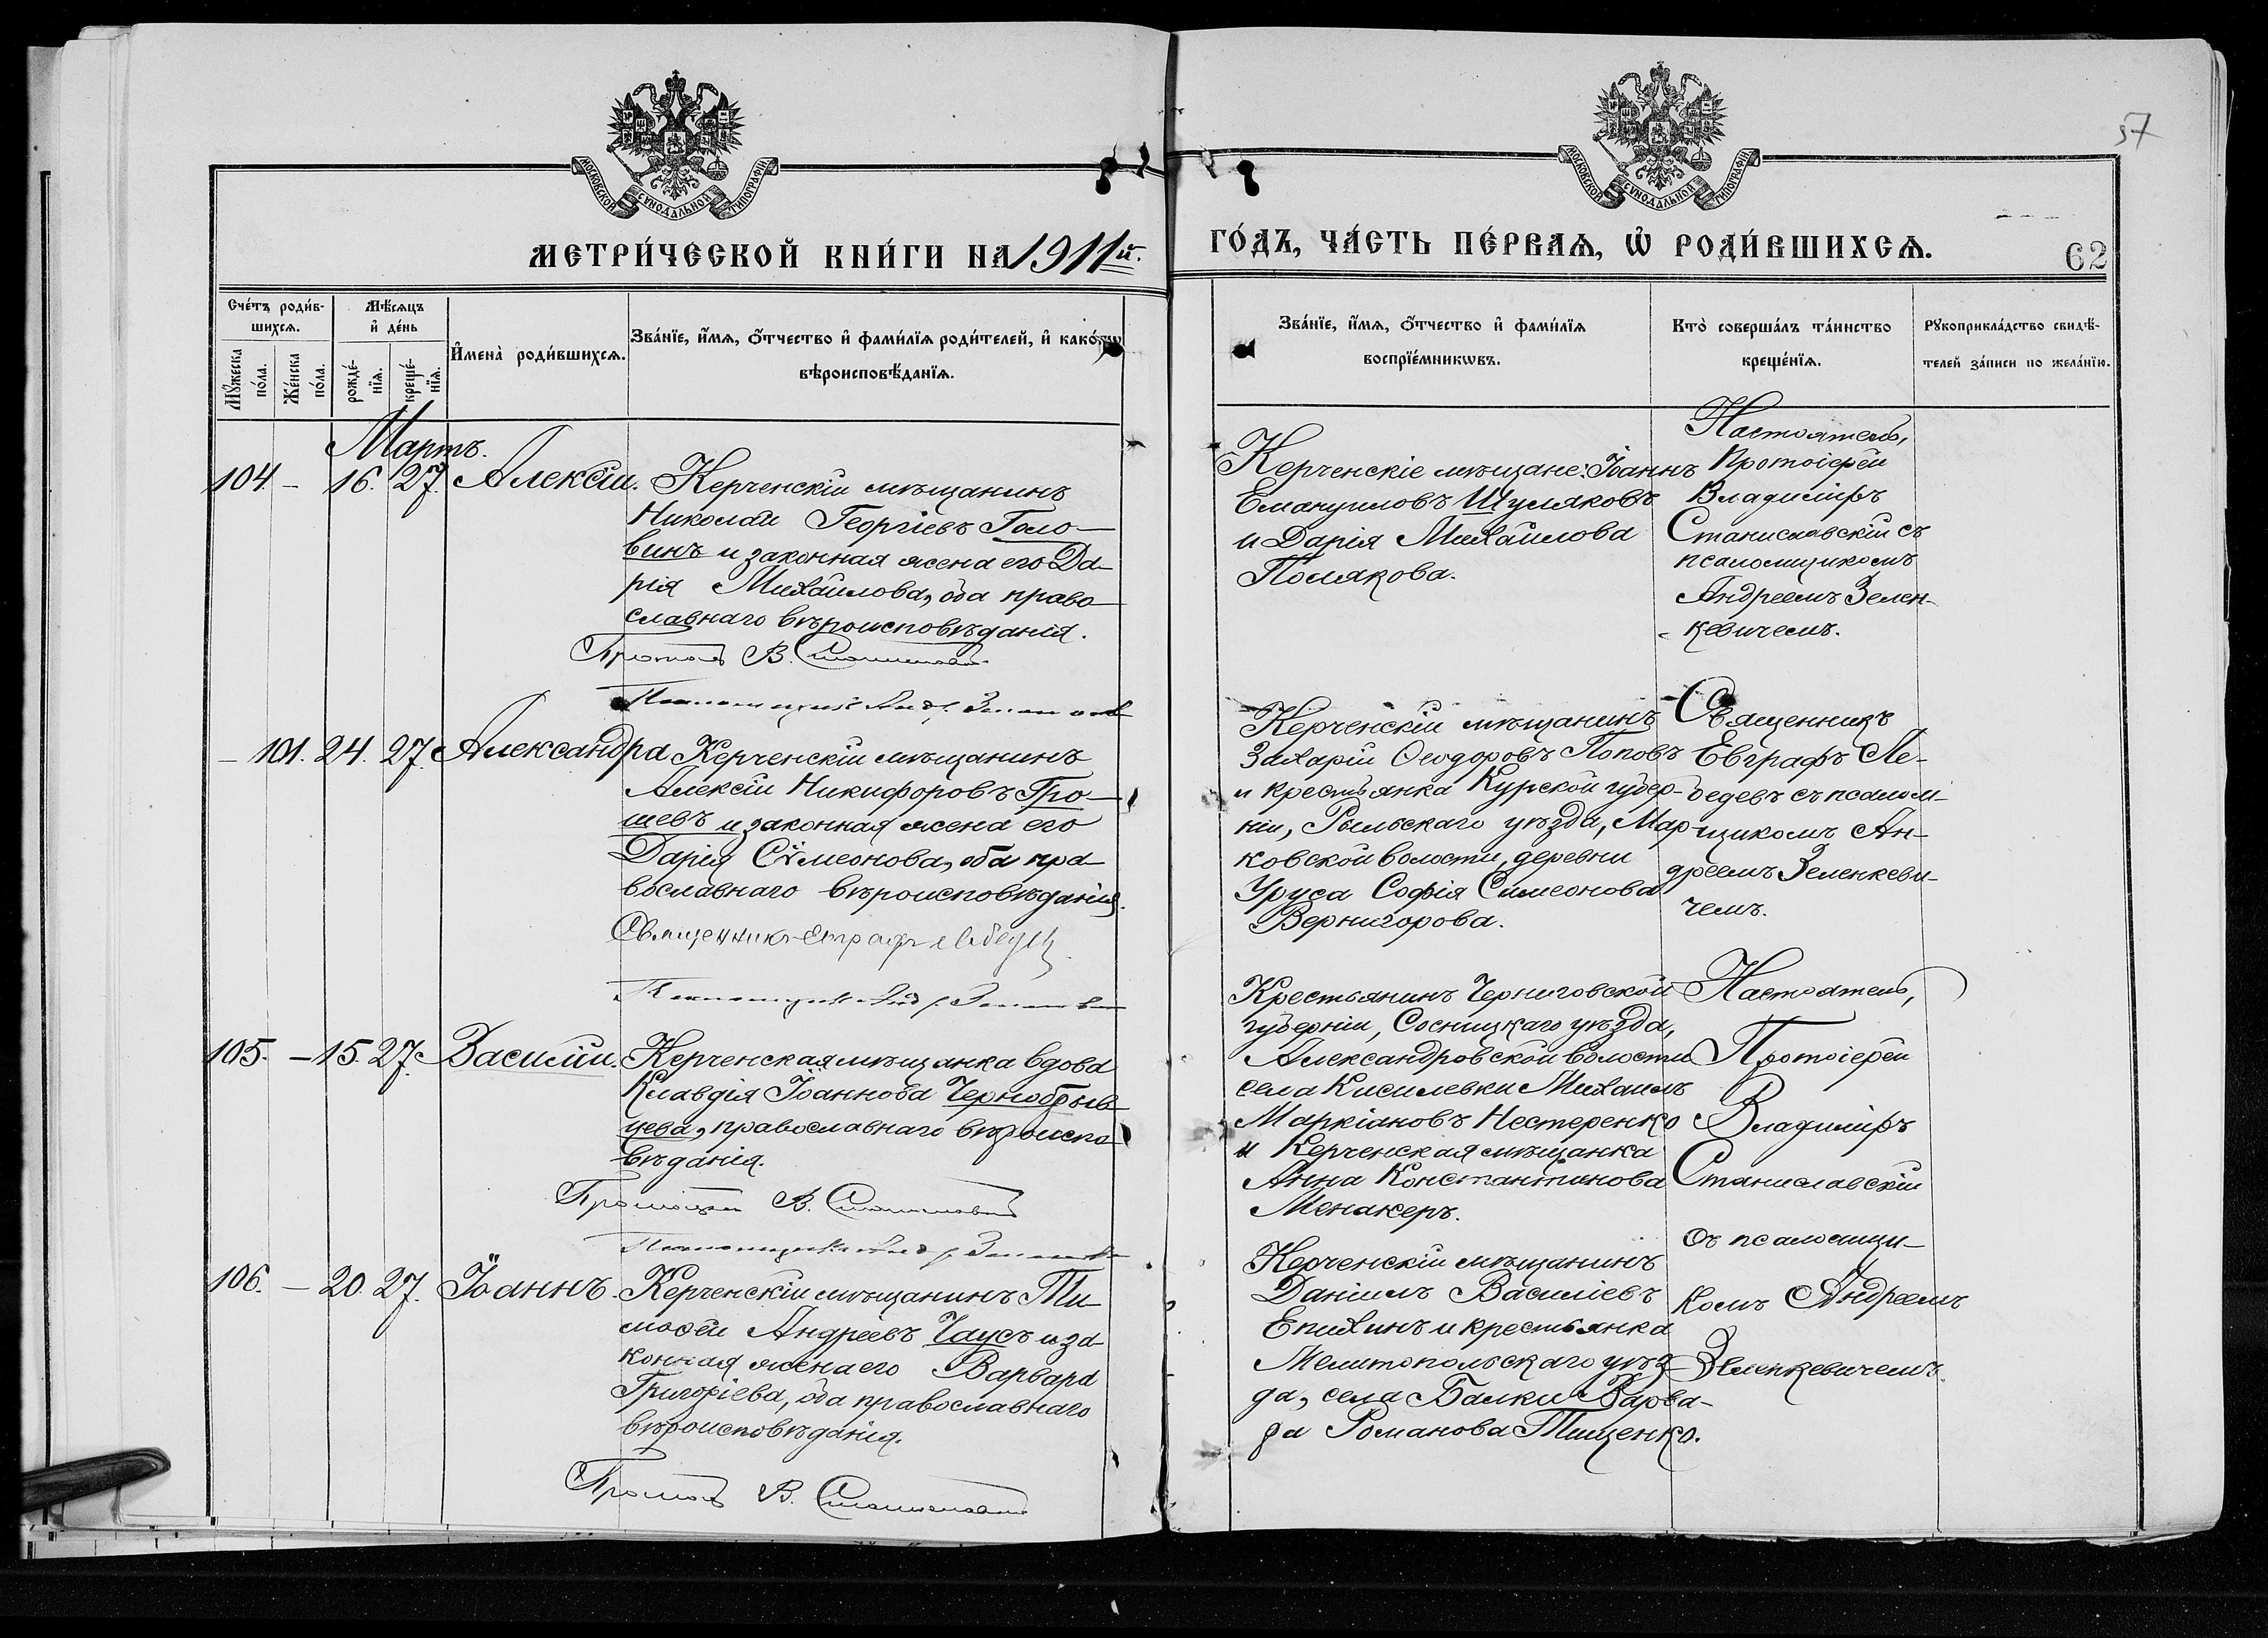 57
МОСКОВСКОЙ СѴНОДАЛЬНОЙ ТИПОГРАФІИ
МОСКОВСКОЙ СѴНОДАЛЬНОЙ ТИПОГРАФІИ
МЕТРИ́ЧЕСКОЙ КНИ́ГИ НА 1911й.
ГО́ДЪ, ЧА́СТЬ ПЕ́РВАѦ, Ѽ РОДИ́ВШИХСѦ.
62
Сче́тъ роди́в-
шихсѧ.
Мꙋ́жеска по́ла.
Же́нска по́ла.
Мѣ́сѧцъ
и҆ де́нь
рожде́-нїѧ.
креще́-нїѧ.
И҆мена̀ роди́вшихсѧ.
Зва́нїе, и҆́мѧ, ѻ҆́тчество и҆ фами́лїѧ роди́телей, и҆ како́гѡ
вѣроисповѣ́данїѧ.
Зва́нїе, и҆́мѧ, ѻ҆́тчество и҆ фами́лїѧ
воспрїе́мникѡвъ.
Кто̀ соверша́лъ та́инство
креще́нїѧ.
Рꙋкоприкла́дство свидѣ́-
телей за́писи по жела́нїю.
Мартъ.
104. – 16. 27. Алексій.
Керченскій мѣщанинъ
Николай Георгіевъ Голо-
винъ и законная жена его Да-
рія Михайлова, оба право-
славнаго вѣроисповѣданія.
Керченскіе мѣщане: Іоаннъ
Емануиловъ Шуляковъ
и Дарія Михайлова
Полякова.
Настоятель,
Протоіерей
Владиміръ
Станиславскій съ
псаломщикомъ
Андреемъ Зелен-
кевичемъ.
– 101. 24. 27. Александра
Керченскій мѣщанинъ
Алексій Никифоровъ Гро-
шевъ и законная жена его
Дарія Сѷмеонова, оба пра-
вославнаго вѣроисповѣданія.
Священникъ Евграфъ Лебедевъ
Керченскій мѣщанинъ
Захарій Ѳеодоровъ Поповъ
и крестьянка Курской губер-
ніи, Рыльскаго уѣзда, Мар-
ковской волости, деревни
Уруса Софія Симеонова
Вернигорова.
Священникъ
Евграфъ Ле-
бедевъ съ псалом-
щикомъ Ан-
дреемъ Зеленкеви-
чемъ.
105. – 15. 27. Василій.
Керченская мѣщанка вдова
Клавдія Іоаннова Чернобрыв-
цева, православнаго вѣроиспо-
вѣданія.
Протоіерей В. Станиславскій
Крестьянинъ Черниговской
губерніи, Сосницкаго уѣзда,
Александровской волости
села Кисилевки Михаилъ
Маркіановъ Нестеренко
и Керченская мѣщанка
Анна Константинова
Менакеръ.
Настоятель,
Протоіерей
Владиміръ
Станиславскій
съ псаломщи-
комъ Андреемъ
Зеленкевичемъ.
106. – 20. 27. Іоаннъ.
Керченскій мѣщанинъ Ти-
моѳей Андреевъ Чаусъ и за-
конная жена его Варвара
Григоріева, оба православнаго
вѣроисповѣданія.
Керченскій мѣщанинъ
Даніилъ Василіевъ
Епихинъ и крестьянка
Мелитопольскаго уѣз-
да, села Балки Варва-
ра Романова Тищенко.